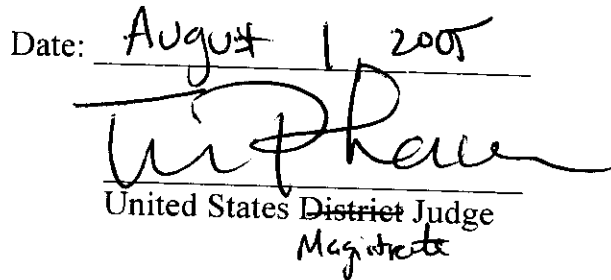 Date: August 1 2005
United States District Judge
Magistrate